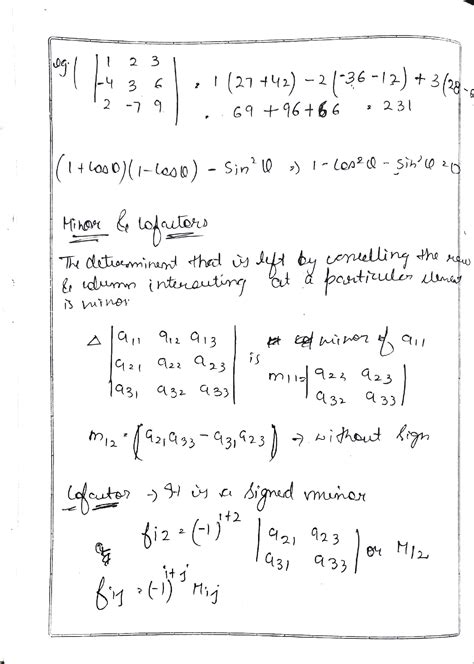 eg. | 1 2 3 | = 1 (27 +42) - 2 (-36 -12) + 3 (28 - 6
| -4 3 6 | = 69 + 96 + 66 = 231
| 2 -7 9 |
(1 + cos θ)(1 - cos θ) - Sin² θ => 1 - cos² θ - Sin² θ = 0
Minor & Cofactors
The determinent that is left by cancelling the row
& column intersecting at a particular element
is minor
Δ | a11 a12 a13 | is minor of a11
| a21 a22 a23 | m11 = | a22 a23 |
| a31 a32 a33 | | a32 a33 |
m12 = (a21 a33 - a31 a23) → without Sign
Cofactor → It is a signed minor
fi2 = (-1)^i+2 | a21 a23 | or M12
| a31 a33 |
fij = (-1)^i+j Mij